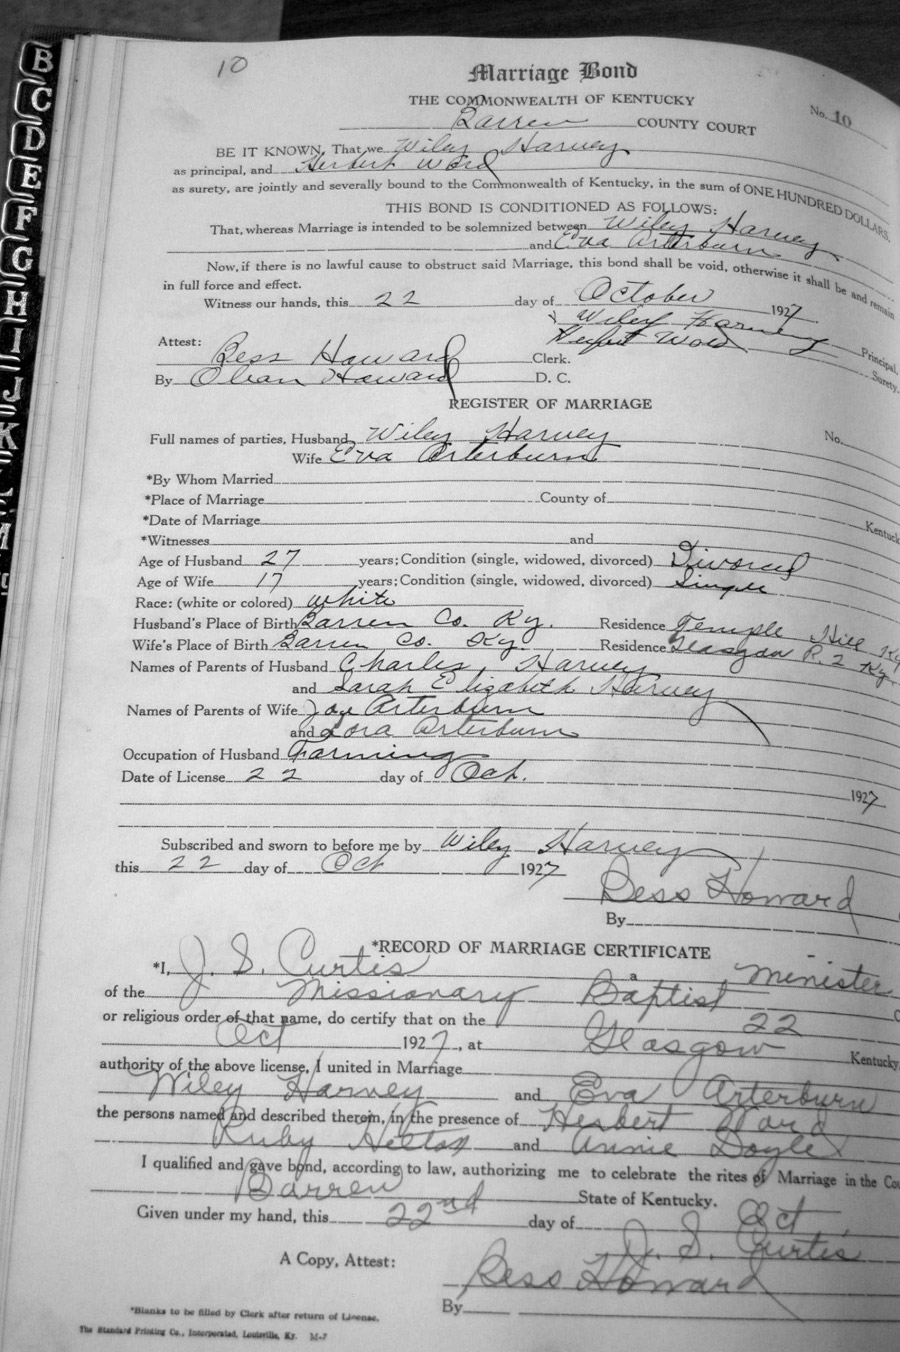 B
C
D
E
F
G
H
I
J
K
10
Marriage Bond
THE COMMONWEALTH OF KENTUCKY
No. 10
Barren COUNTY COURT
BE IT KNOWN, That we Wiley Harvey
as principal, and Herbert Ward
as surety, are jointly and severally bound to the Commonwealth of Kentucky, in the sum of ONE HUNDRED DOLLARS.
THIS BOND IS CONDITIONED AS FOLLOWS:
That, whereas Marriage is intended to be solemnized between Wiley Harvey
and Eva Arterburn
Now, if there is no lawful cause to obstruct said Marriage, this bond shall be void, otherwise it shall be and remain
in full force and effect.
Witness our hands, this 22 day of October 1927
x Wiley Harvey Principal,
Herbert Ward Surety.
Attest: Bess Howard Clerk.
By Olean Howard D. C.
REGISTER OF MARRIAGE
Full names of parties, Husband Wiley Harvey No.
Wife Eva Arterburn
*By Whom Married
*Place of Marriage County of
*Date of Marriage Kentuck
*Witnesses and
Age of Husband 27 years; Condition (single, widowed, divorced) Divorced
Age of Wife 17 years; Condition (single, widowed, divorced) Single
Race: (white or colored) white
Husband's Place of Birth Barren Co. Ky. Residence Temple Hill Ky
Wife's Place of Birth Barren Co. Ky. Residence Glasgow R. 2 Ky.
Names of Parents of Husband Charles Harvey
and Sarah Elizabeth Harvey
Names of Parents of Wife Joe Arterburn
and Lora Arterburn
Occupation of Husband Farming
Date of License 22 day of Oct. 1927
Subscribed and sworn to before me by Wiley Harvey
this 22 day of Oct 1927
Bess Howard
By
*RECORD OF MARRIAGE CERTIFICATE
*I, J. S. Curtis a minister
of the Missionary Baptist
or religious order of that name, do certify that on the 22
Oct 1927, at Glasgow Kentucky,
authority of the above license, I united in Marriage
Wiley Harvey and Eva Arterburn
the persons named and described therein, in the presence of Herbert Ward
Ruby and Annie Doyle
I qualified and gave bond, according to law, authorizing me to celebrate the rites of Marriage in the Cou
Barren State of Kentucky.
Given under my hand, this 22nd day of Oct
J. S. Curtis
A Copy, Attest: Bess Howard
By
*Blanks to be filled by Clerk after return of License.
The Standard Printing Co., Incorporated, Louisville, Ky. M-7